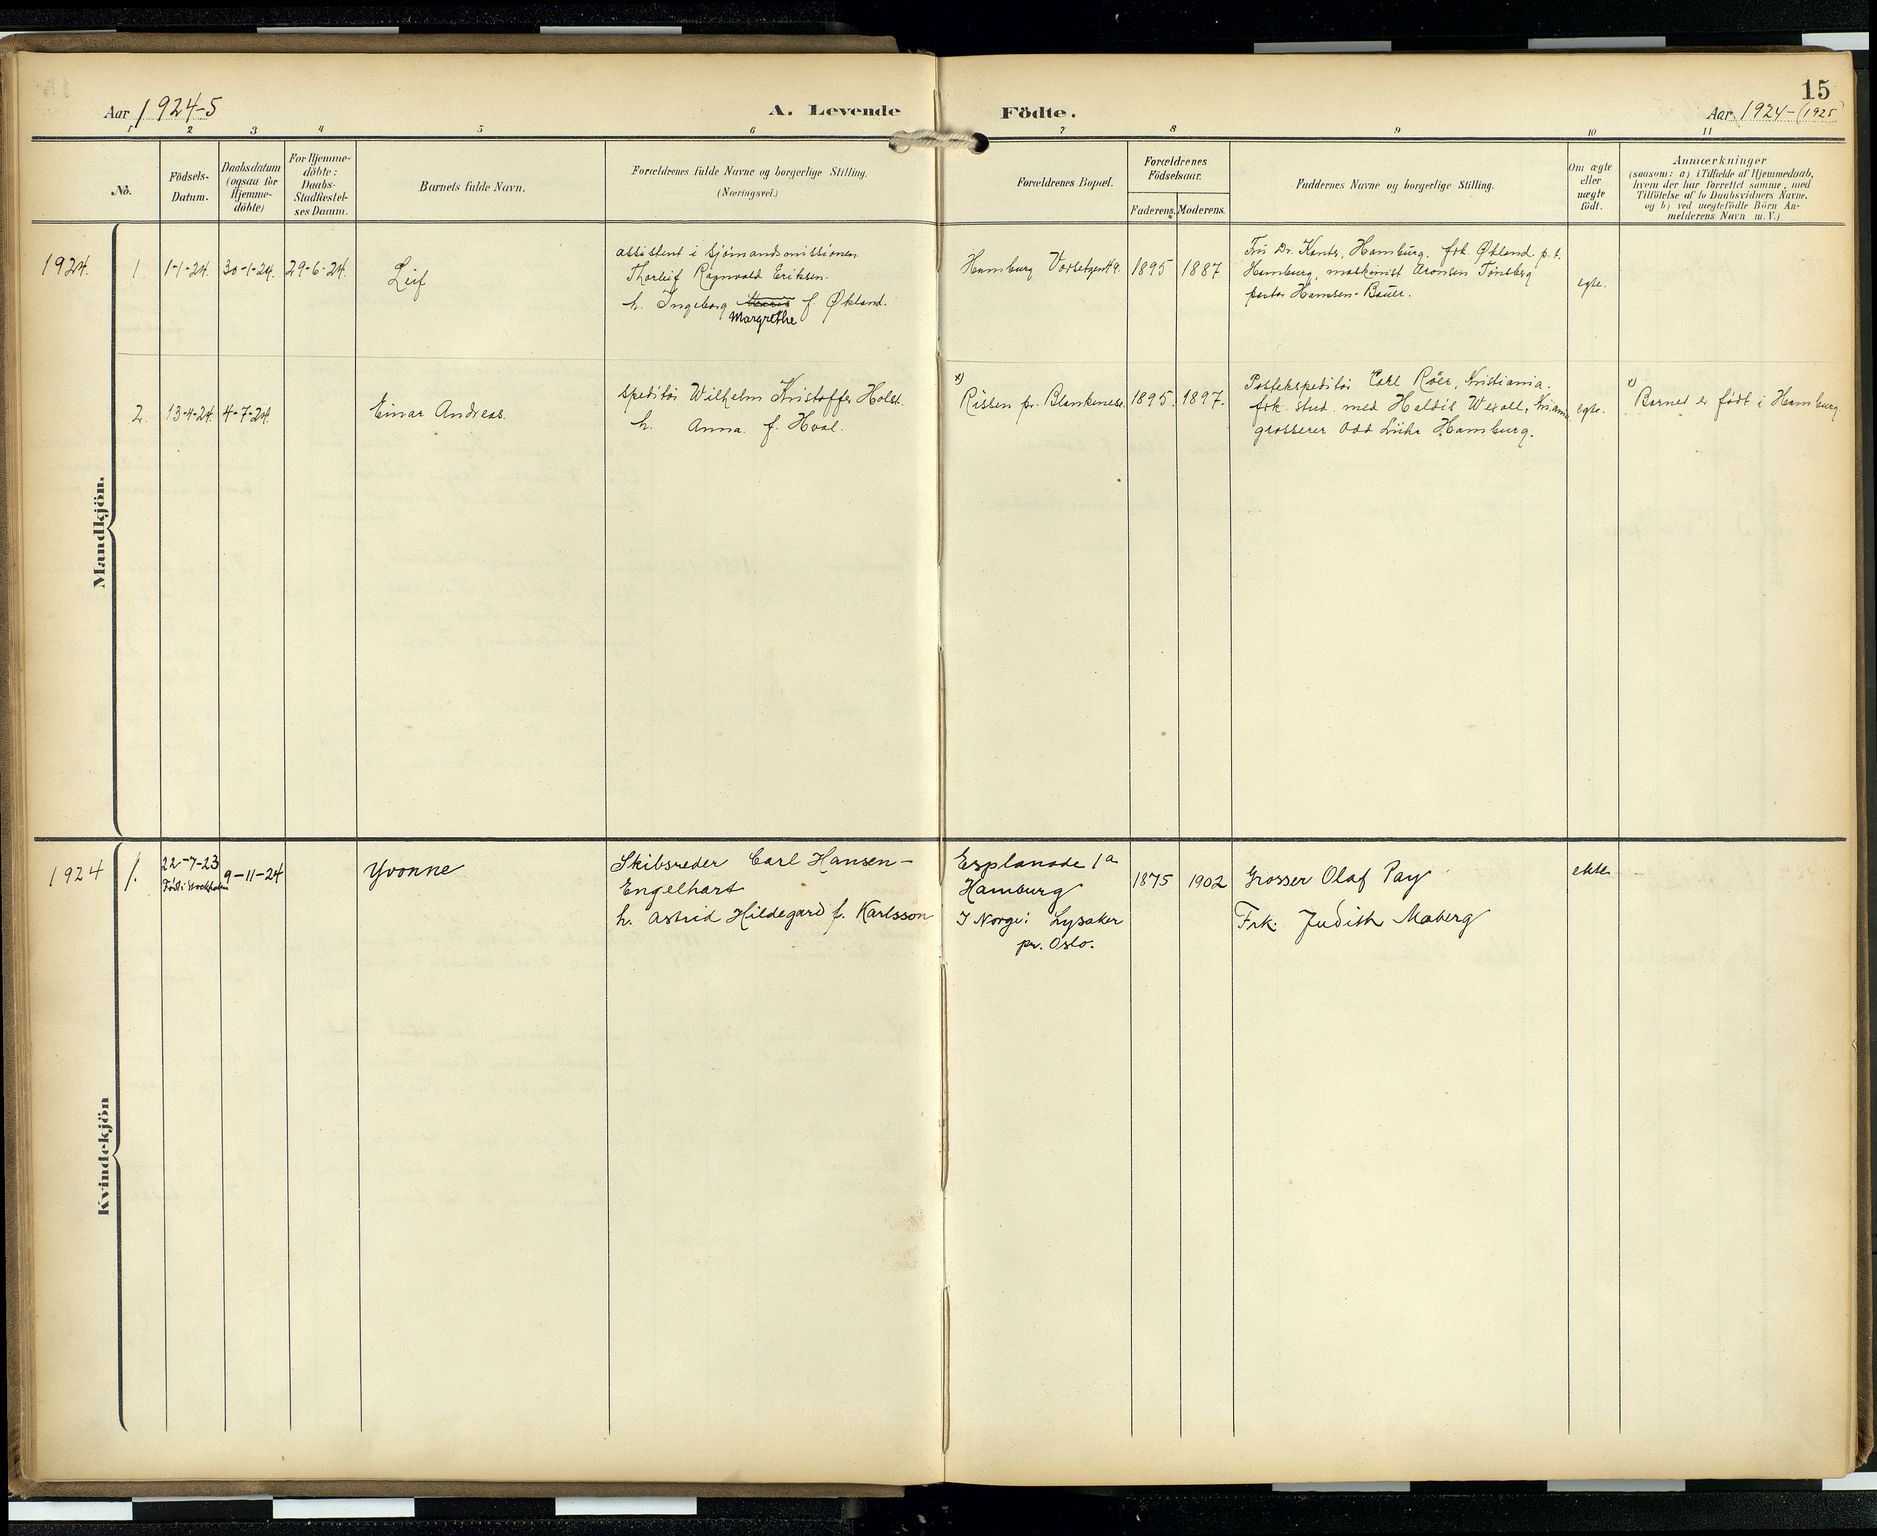 Aar 1924-5
A. Levende
Födte.
15
Aar 1924-(1925)
1 2 3 4 5 6 7 8 9 10 11
No.
Födsels-
Datum.
Daabsdatum
(ogsaa for
Hjemme-
döbte)
For Hjemme-
döbte:
Daabs-
Stadfæstel-
ses Datum.
Barnets fulde Navn.
Forældrenes fulde Navne og borgerlige Stilling.
(Næringsvei.)
Forældrenes Bopæl.
Forældrenes
Födselsaar.
Faderens. Moderens.
Faddernes Navne og borgerlige Stilling.
Om ægte
eller
uægte
födt.
Anmærkninger
(saasom: a) i Tilfælde af Hjemmedaab,
hvem der har forrettet samme, med
Tilföielse af to Daabsvidners Navne,
og b) ved uægtefödte Börn An-
melderens Navn m. V.)
Mandkjön.
1924. 1. 1-1-24. 30-1-24. 29-6-24. Leif
assistent i sjømandsmissionen
Thorleif Ragnvald Eriksen.
h. Ingeborg f. Økland.
Margrethe
Hamburg Vorsetzen 19. 1895 1887
Fru Dr. Kants, Hamburg. frk. Økland p.t.
Hamburg, maskinist Aronsen Tønsberg
pastor Hansen-Bauer.
egte.
2. 13-4-24. 4-7-24. Einar Andreas.
Speditør Wilhelm Kristoffer Holst.
h. Anna f. Hval.
x)
Rissen pr. Blankenese. 1895. 1897.
Postekspeditør Carl Røer, Kristiania.
frk. stud. med Haldis Wexall, Kriania
grosserer Odd Lühr Hamburg.
egte.
x) Barnet er født i Hamburg.
Kvindekjön
1924 1. 22-7-23 9-11-24 Yvonne
Født i Stockholm
Skibsreder Carl Hansen-
Engelhart
h. Astrid Hildegard f. Karlsson
Esplanade 1a
Hamburg
I Norge: Lysaker
pr. Oslo.
1875 1902
Grosser Olaf Pay
Frk. Judith Moberg
ekte